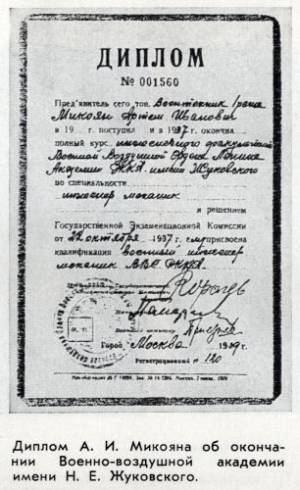 ДИПЛОМ
№ 001560
Пред'явитель сего тов. Воентехник I ранга
Микоян Артем Иванович
в 19 г. поступил и в 1937 г. окончил
полный курс инженерного факультета
Военной Воздушной Ордена Ленина
Академии РККА имени Жуковского
по специальности
инженер механик
и решением
Государственной Экзаменационной Комиссии
от 22 октября 1937 г. ему присвоена
квалификация военный инженер
механик ВВС РККА
Город Москва
Регистрационный № 120
Диплом А. И. Микояна об оконча-
нии Военно-воздушной академии
имени Н. Е. Жуковского.